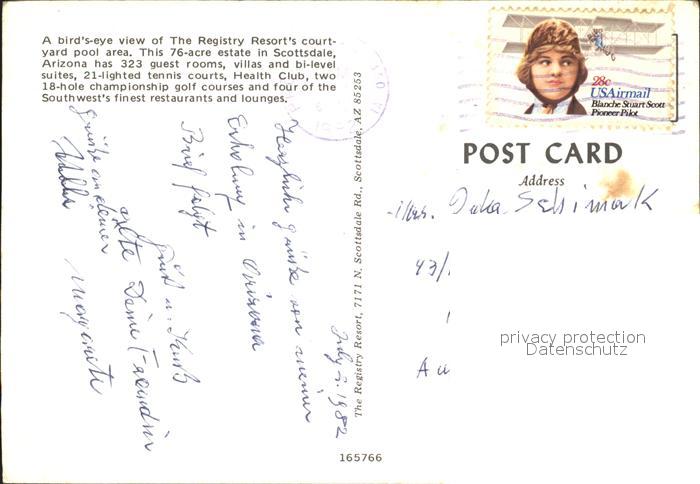 A bird's-eye view of The Registry Resort's court-
yard pool area. This 76-acre estate in Scottsdale,
Arizona has 323 guest rooms, villas and bi-level
suites, 21-lighted tennis courts, Health Club, two
18-hole championship golf courses and four of the
Southwest's finest restaurants and lounges.
28c
USAirmail
Blanche Stuart Scott
Pioneer Pilot
POST CARD
Address
43/
Au
privacy protection
Datenschutz
The Registry Resort, 7171 N. Scottsdale Rd., Scottsdale, AZ 85253
July 1982
Herzliche Grüße von meiner
Erholung in Arizona
Brief folgt
Gruß u. Kuß
alte Deine Freundin
Margarete
Grüße an deine
165766